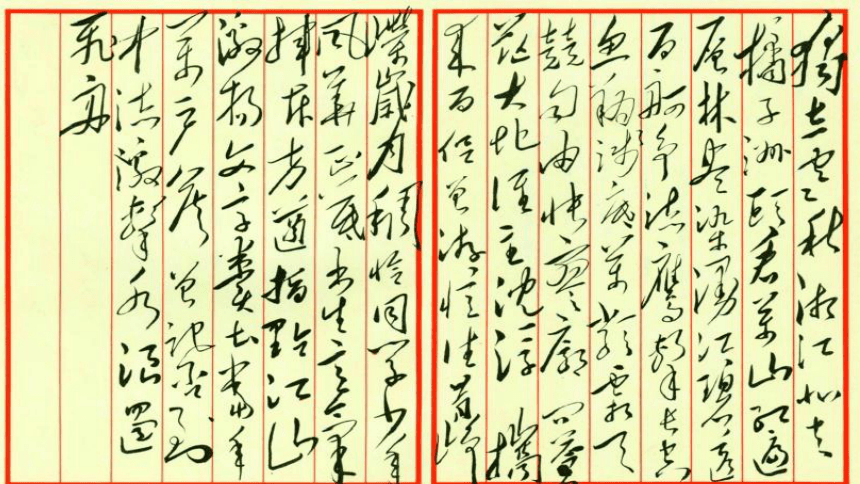 獨立寒秋湘江北去
橘子洲頭看萬山紅遍
層林盡染漫江碧透
百舸爭流鷹擊長空
魚翔淺底萬類霜天
競自由悵寥廓問蒼
茫大地誰主沈浮 攜
來百侶曾游憶往昔崢
嶸歲月稠恰同學少年
風華正茂書生意氣
揮斥方遒指點江山
激揚文字糞土當年
萬戶侯曾記否到
中流激擊水浪遏
飛舟